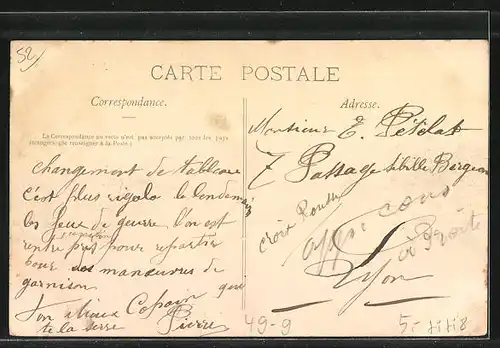 52
CARTE POSTALE
Correspondance.
Adresse.
La Correspondance au recto n'est pas acceptée par tous les pays
étrangers. (Se renseigner à la Poste.)
changement de tableau
c'est plus rigolo le lendemain
les feux de guerre l'on est
rentre pret pour repartir
pour des manœuvres de
garnison
Ton vieux Copain que
te la serre Pierre
Monsieur E. Pételat
7 Passage Sibille Bergeon
croix Rousse
Lyon
à droite
49-9